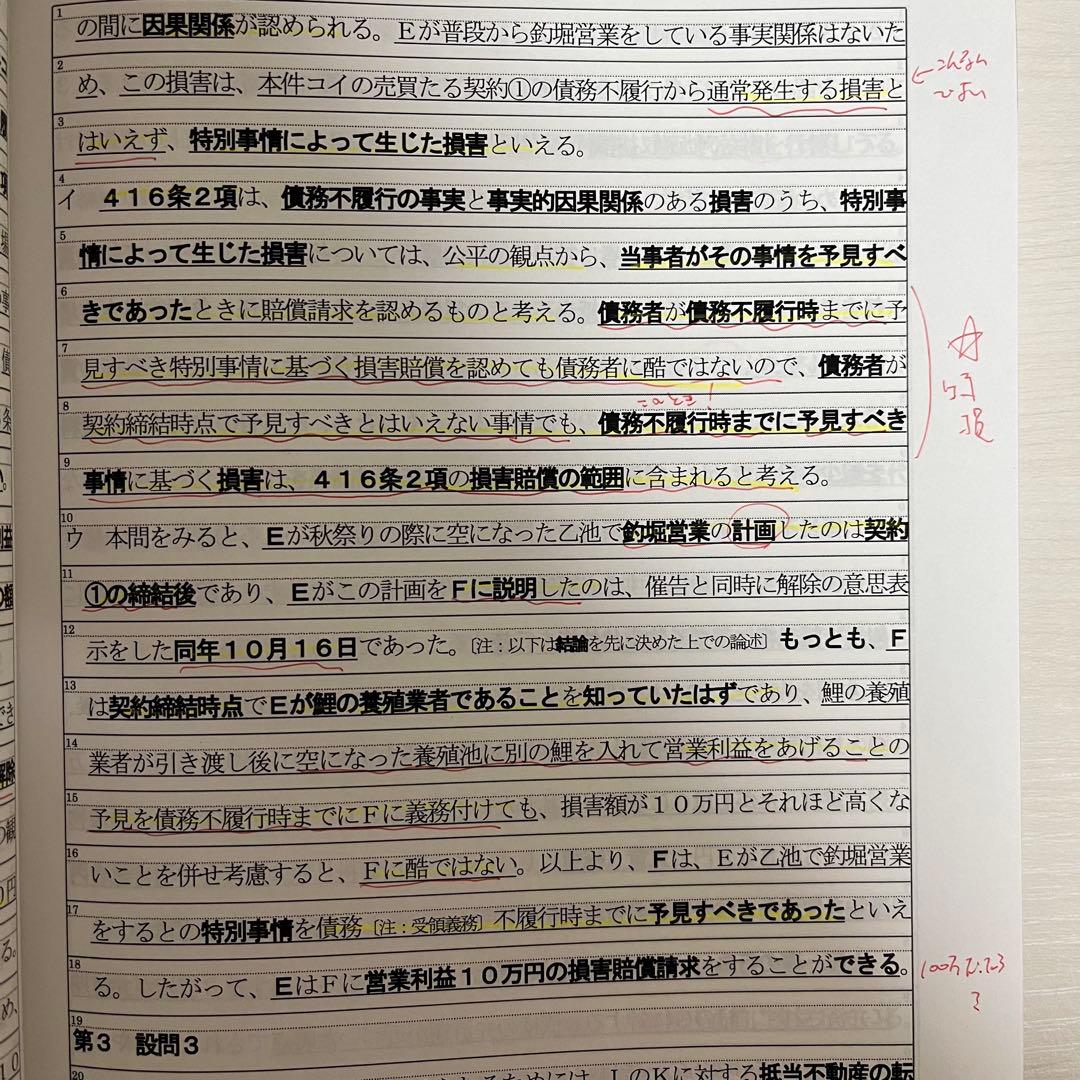 1
の間に因果関係が認められる。Ｅが普段から釣堀営業をしている事実関係はないた
2
め、この損害は、本件コイの売買たる契約①の債務不履行から通常発生する損害と
3
はいえず、特別事情によって生じた損害といえる。
4
イ　４１６条２項は、債務不履行の事実と事実的因果関係のある損害のうち、特別事
5
情によって生じた損害については、公平の観点から、当事者がその事情を予見すべ
6
きであったときに賠償請求を認めるものと考える。債務者が債務不履行時までに予
7
見すべき特別事情に基づく損害賠償を認めても債務者に酷ではないので、債務者が
このとき！
8
契約締結時点で予見すべきとはいえない事情でも、債務不履行時までに予見すべき
9
事情に基づく損害は、４１６条２項の損害賠償の範囲に含まれると考える。
10
ウ　本問をみると、Ｅが秋祭りの際に空になった乙池で釣堀営業の計画したのは契約
11
①の締結後であり、Ｅがこの計画をＦに説明したのは、催告と同時に解除の意思表
12
示をした同年１０月１６日であった。［注：以下は結論を先に決めた上での論述］もっとも、Ｆ
13
は契約締結時点でＥが鯉の養殖業者であることを知っていたはずであり、鯉の養殖
14
業者が引き渡し後に空になった養殖池に別の鯉を入れて営業利益をあげることの
15
予見を債務不履行時までにＦに義務付けても、損害額が１０万円とそれほど高くな
16
いことを併せ考慮すると、Ｆに酷ではない。以上より、Ｆは、Ｅが乙池で釣堀営業
17
をするとの特別事情を債務［注：受領義務］不履行時までに予見すべきであったといえ
18
る。したがって、ＥはＦに営業利益１０万円の損害賠償請求をすることができる。
19
第３　設問３
20
抵当不動産の転